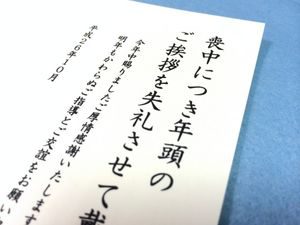 喪中につき年頭の
ご挨拶を失礼させて
今年中賜りましたご厚情感謝いたします
明年もかわらぬご指導とご交誼をお願い
平成26年10月